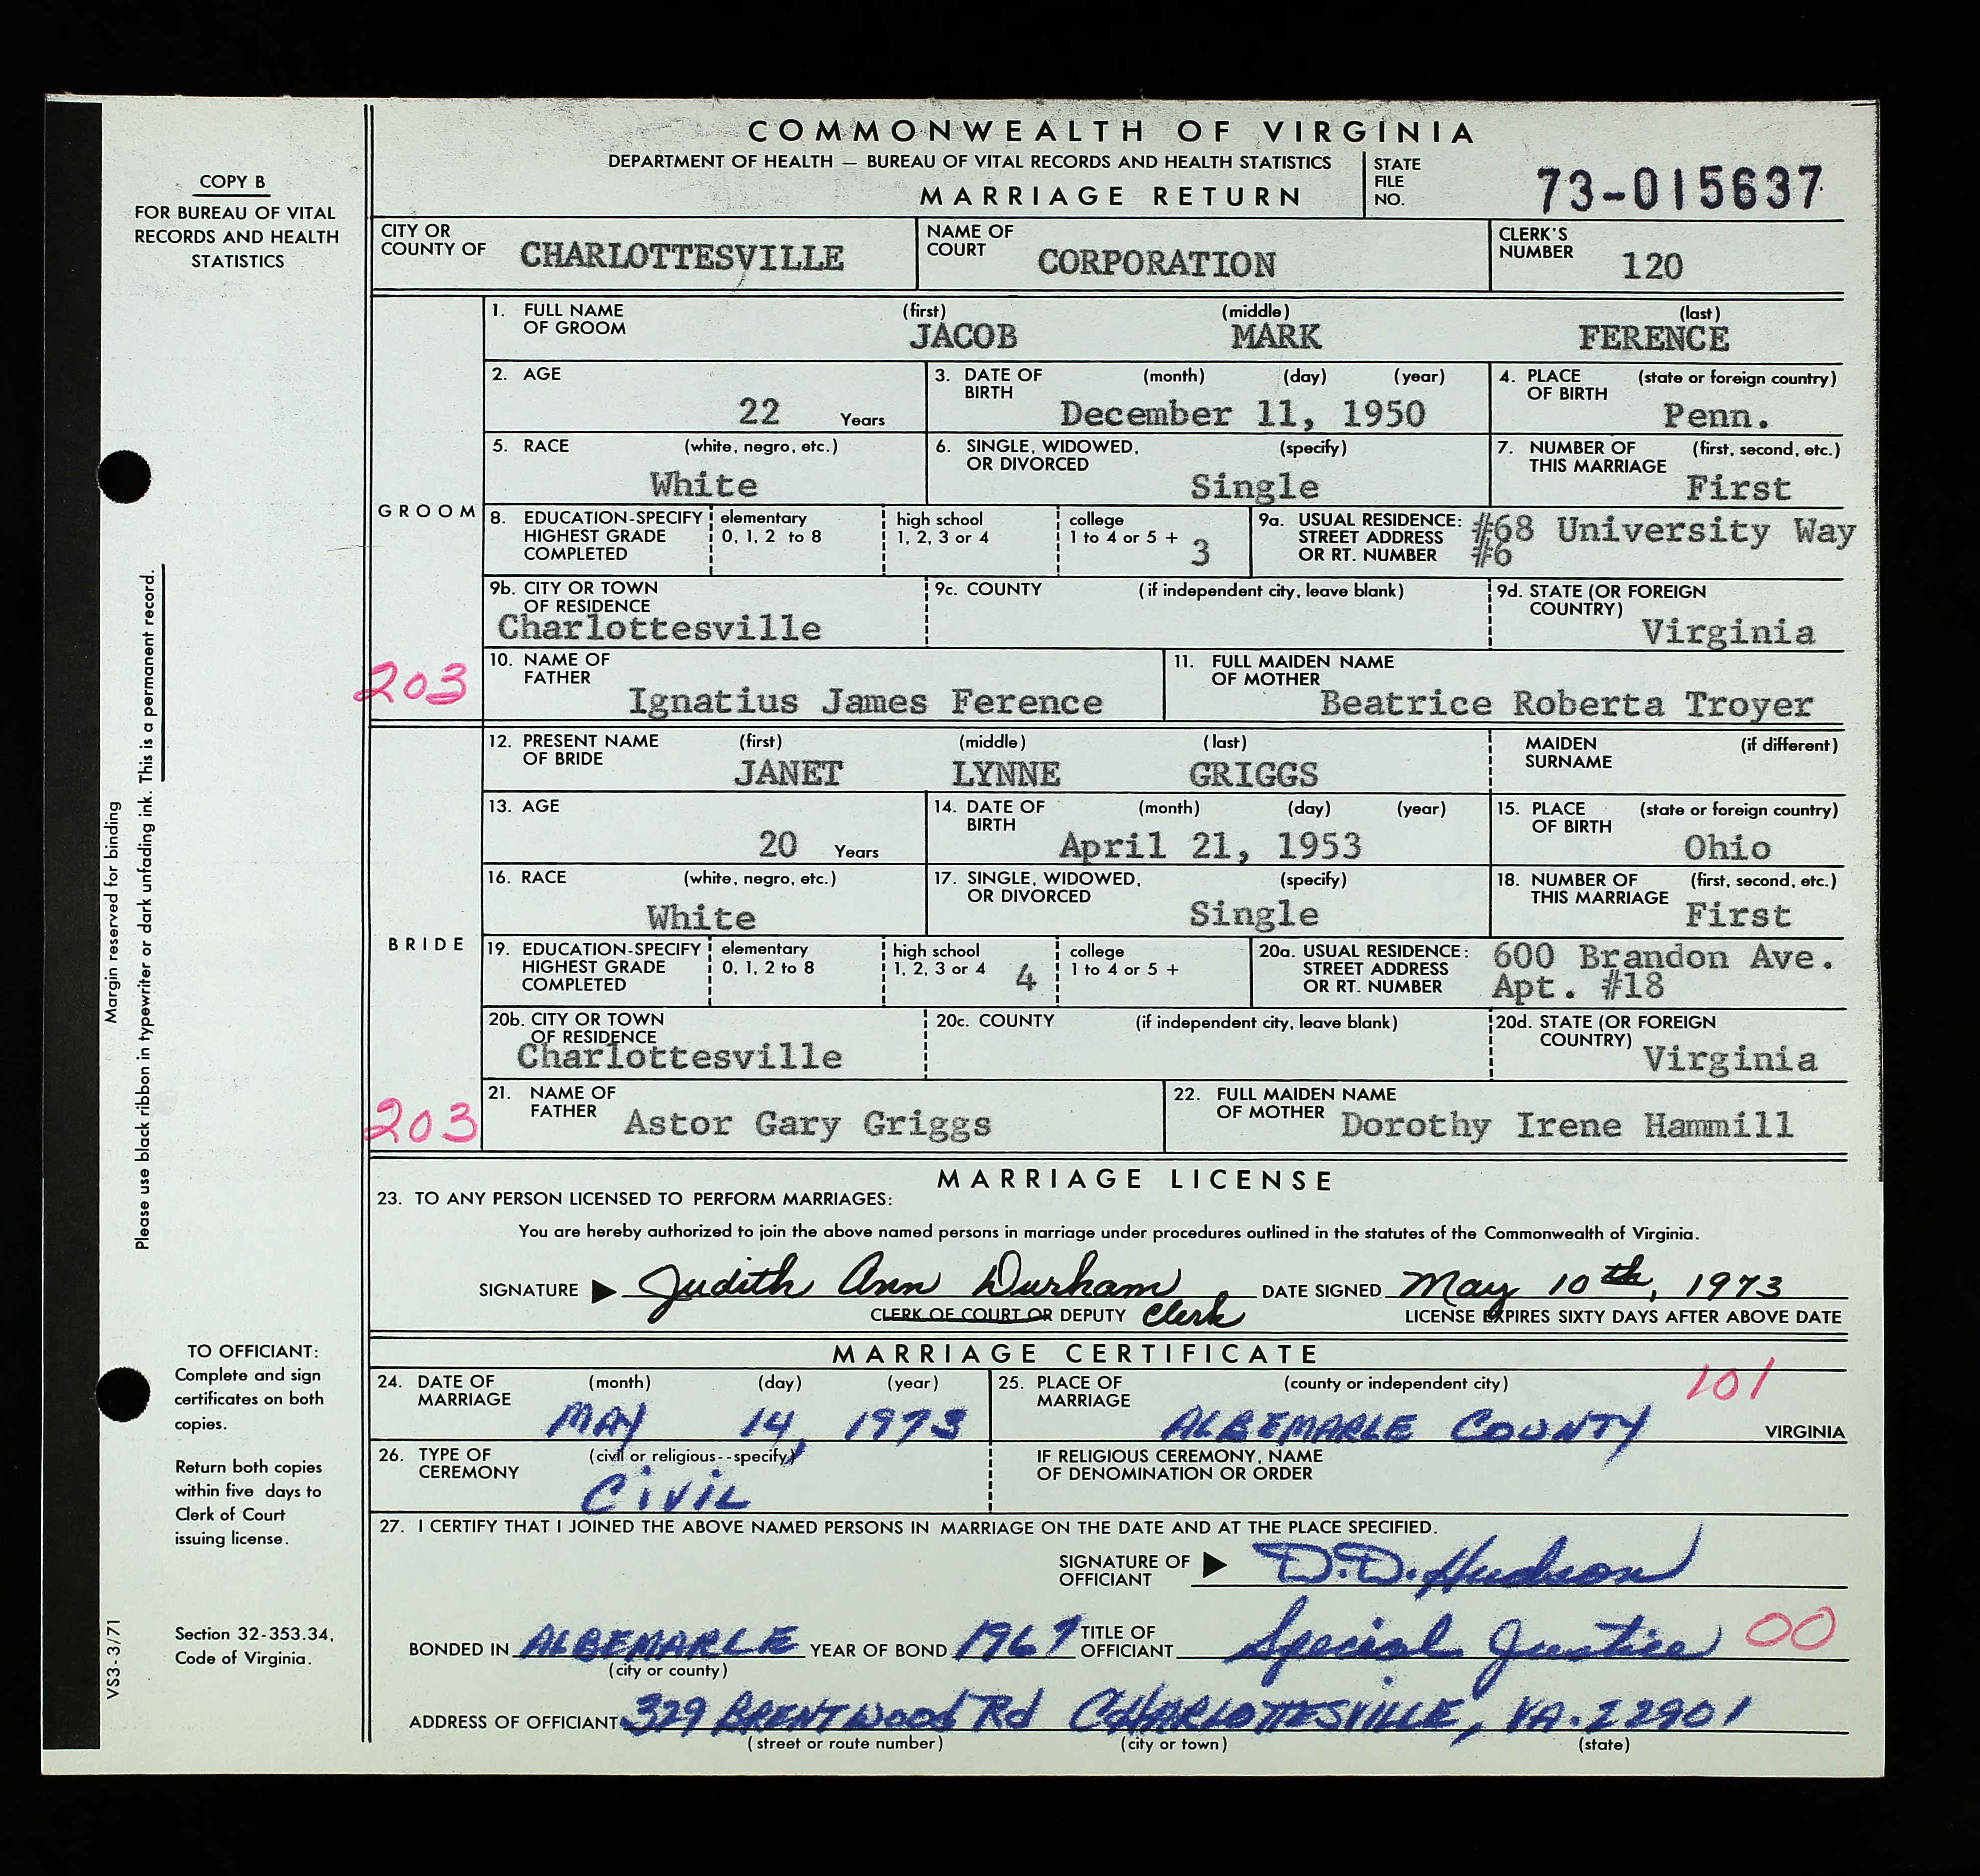 COMMONWEALTH OF VIRGINIA
DEPARTMENT OF HEALTH — BUREAU OF VITAL RECORDS AND HEALTH STATISTICS
MARRIAGE RETURN
STATE FILE NO. 73-015637
COPY B
FOR BUREAU OF VITAL
RECORDS AND HEALTH
STATISTICS
CITY OR COUNTY OF CHARLOTTESVILLE NAME OF COURT CORPORATION CLERK'S NUMBER 120
GROOM
1. FULL NAME OF GROOM (first) JACOB (middle) MARK (last) FERENCE
2. AGE 22 Years 3. DATE OF BIRTH (month) (day) (year) December 11, 1950 4. PLACE OF BIRTH (state or foreign country) Penn.
5. RACE (white, negro, etc.) White 6. SINGLE, WIDOWED, OR DIVORCED (specify) Single 7. NUMBER OF THIS MARRIAGE (first, second, etc.) First
8. EDUCATION-SPECIFY HIGHEST GRADE COMPLETED elementary 0, 1, 2 to 8 high school 1, 2, 3 or 4 college 1 to 4 or 5 + 3 9a. USUAL RESIDENCE: STREET ADDRESS OR RT. NUMBER #68 University Way #6
9b. CITY OR TOWN OF RESIDENCE Charlottesville 9c. COUNTY (if independent city, leave blank) 9d. STATE (OR FOREIGN COUNTRY) Virginia
203
10. NAME OF FATHER Ignatius James Ference 11. FULL MAIDEN NAME OF MOTHER Beatrice Roberta Troyer
BRIDE
12. PRESENT NAME OF BRIDE (first) JANET (middle) LYNNE (last) GRIGGS MAIDEN SURNAME (if different)
13. AGE 20 Years 14. DATE OF BIRTH (month) (day) (year) April 21, 1953 15. PLACE OF BIRTH (state or foreign country) Ohio
16. RACE (white, negro, etc.) White 17. SINGLE, WIDOWED, OR DIVORCED (specify) Single 18. NUMBER OF THIS MARRIAGE (first, second, etc.) First
19. EDUCATION-SPECIFY HIGHEST GRADE COMPLETED elementary 0, 1, 2 to 8 high school 1, 2, 3 or 4 4 college 1 to 4 or 5 + 20a. USUAL RESIDENCE: STREET ADDRESS OR RT. NUMBER 600 Brandon Ave. Apt. #18
20b. CITY OR TOWN OF RESIDENCE Charlottesville 20c. COUNTY (if independent city, leave blank) 20d. STATE (OR FOREIGN COUNTRY) Virginia
203
21. NAME OF FATHER Astor Gary Griggs 22. FULL MAIDEN NAME OF MOTHER Dorothy Irene Hammill
MARRIAGE LICENSE
23. TO ANY PERSON LICENSED TO PERFORM MARRIAGES:
You are hereby authorized to join the above named persons in marriage under procedures outlined in the statutes of the Commonwealth of Virginia.
SIGNATURE ▶ Judith Ann Durham DATE SIGNED May 10th, 1973
CLERK OF COURT OR DEPUTY Clerk LICENSE EXPIRES SIXTY DAYS AFTER ABOVE DATE
MARRIAGE CERTIFICATE
24. DATE OF MARRIAGE (month) (day) (year) MAY 14, 1973 25. PLACE OF MARRIAGE (county or independent city) 101 ALBEMARLE COUNTY VIRGINIA
26. TYPE OF CEREMONY (civil or religious--specify) CIVIL IF RELIGIOUS CEREMONY, NAME OF DENOMINATION OR ORDER
27. I CERTIFY THAT I JOINED THE ABOVE NAMED PERSONS IN MARRIAGE ON THE DATE AND AT THE PLACE SPECIFIED.
SIGNATURE OF OFFICIANT ▶ D.D. Hudson
BONDED IN ALBEMARLE (city or county) YEAR OF BOND 1969 TITLE OF OFFICIANT Special Justice 00
ADDRESS OF OFFICIANT 329 BRENTWOOD Rd CHARLOTTESVILLE, VA. 22901
(street or route number) (city or town) (state)
Margin reserved for binding
Please use black ribbon in typewriter or dark unfading ink. This is a permanent record.
TO OFFICIANT:
Complete and sign
certificates on both
copies.
Return both copies
within five days to
Clerk of Court
issuing license.
Section 32-353.34,
Code of Virginia.
VS3-3/71